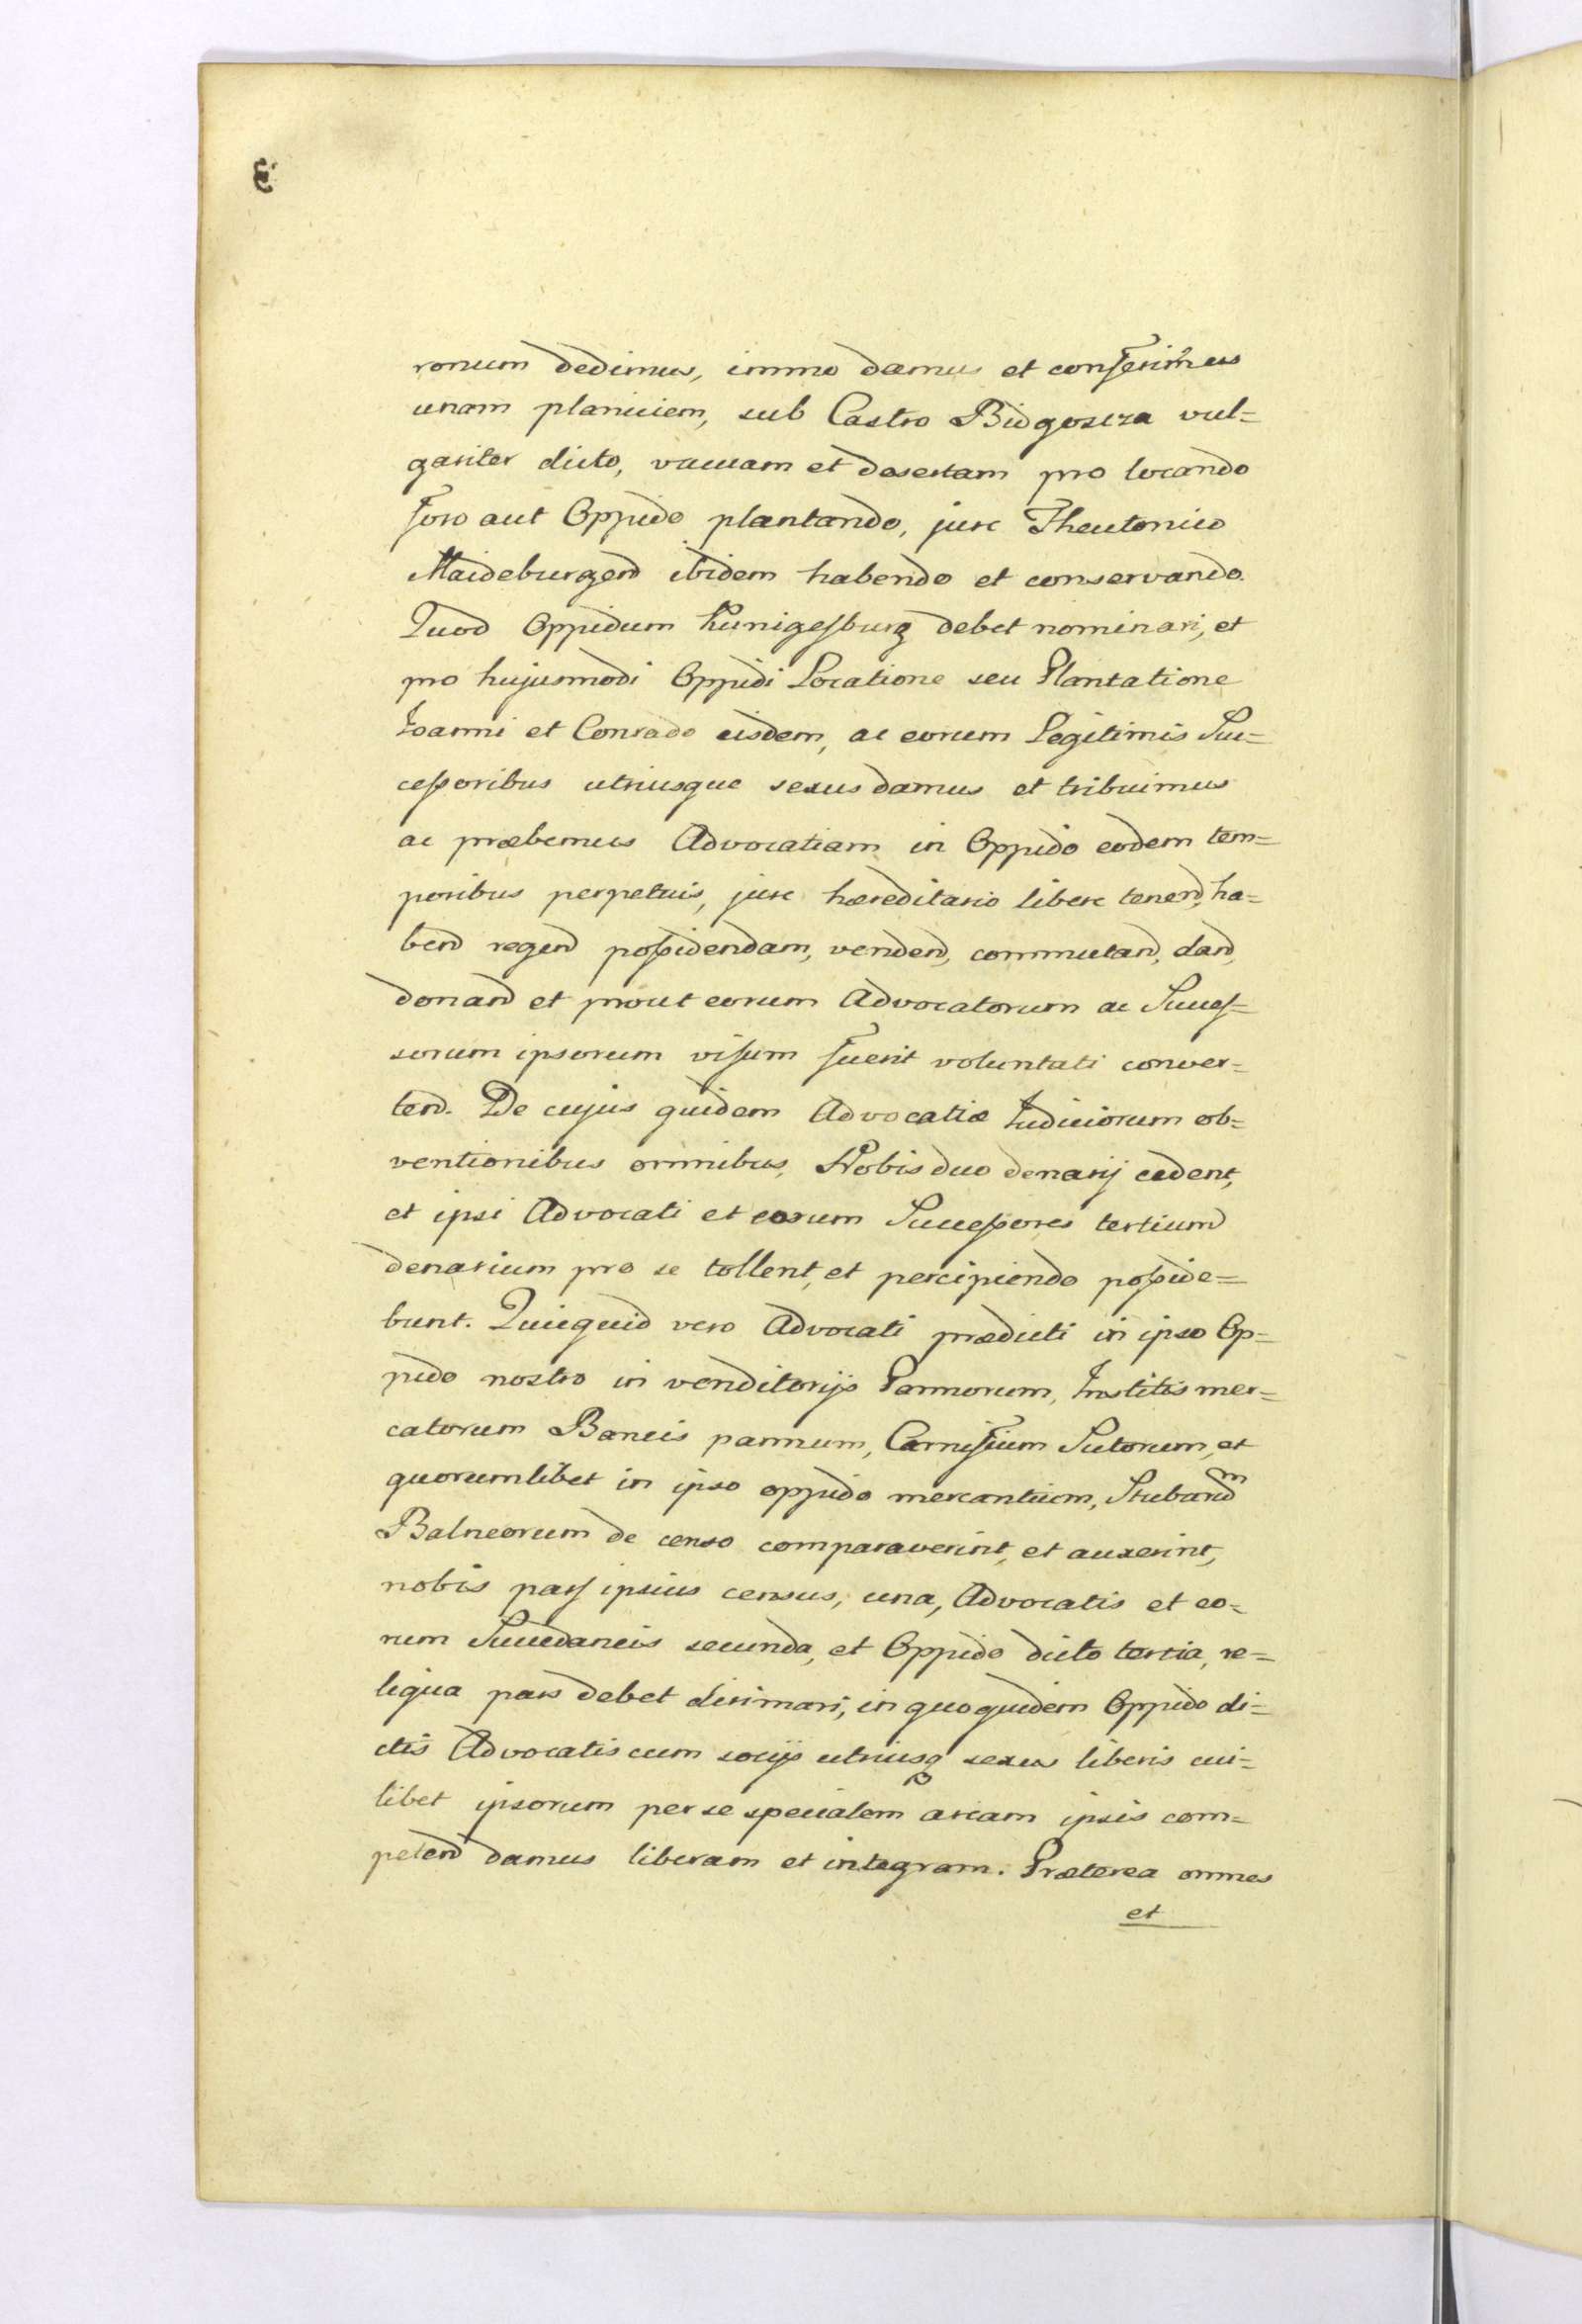 ronum dedimus, immo damus et conferimus
unam planiciem, sub Castro Bidgoscza vul=
gariter dicto, vacuam et desertam pro locando
foro aut Oppido plantando, jure Theutonico
Maideburgend ibidem habendo et conservando.
Quod Oppidum Kunigesburg debet nominari, et
pro hujusmodi Oppidi Locatione seu Plantatione
Joanni et Conrado eisdem, ac eorum Legitimis Suc=
cessoribus utriusque sexus damus et tribuimus
ac præbemus Advocatiam in Oppido eodem tem=
poribus perpetuis, jure hæreditario libere tenend, ha=
bend regend possidendam, vendend, commutand, dand,
donand et prout eorum Advocatorum ac Succes=
sorum ipsorum visum fuerit voluntati conver=
tend. De cujus quidem Advocatiæ Judiciorum ob=
ventionibus omnibus, Nobis duo denarij cedent,
et ipsi Advocati et eorum Successores tertium
denarium pro se tollent, et percipiendo posside=
bunt. Quicquid vero Advocati prædicti in ipso Op=
pido nostro in venditorijs Pannorum, Institis mer=
catorum Bancis pannum, Carnificum Sutorum, et
quorumlibet in ipso oppido mercantium, Stubarum
Balneorum de censo comparaverint, et auxerint,
nobis pars ipsius census, una, Advocatis et eo=
rum Succedaneis secunda, et Oppido dicto tertia, re=
liqua pars debet dirimari, in quo quidem Oppido di=
ctis Advocatis cum socijs utriusq sexus liberis cui=
libet ipsorum per se specialem aream ipsis com=
petend damus liberam et integram. Præterea omnes
et